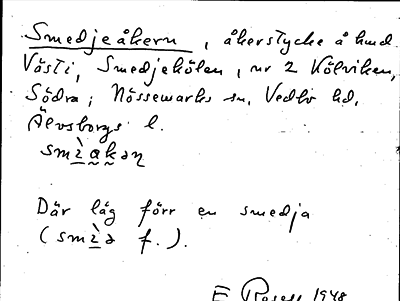 Smedjeåkern, åkerstycke å hmd.
Västi, Smedjekölen, nr 2 Kölviken,
Södra; Nössemarks sn, Vedbo hd,
Älvsborgs l.
smìakəɳ
Där låg förr en smedja
(smìə f.).
E 1948